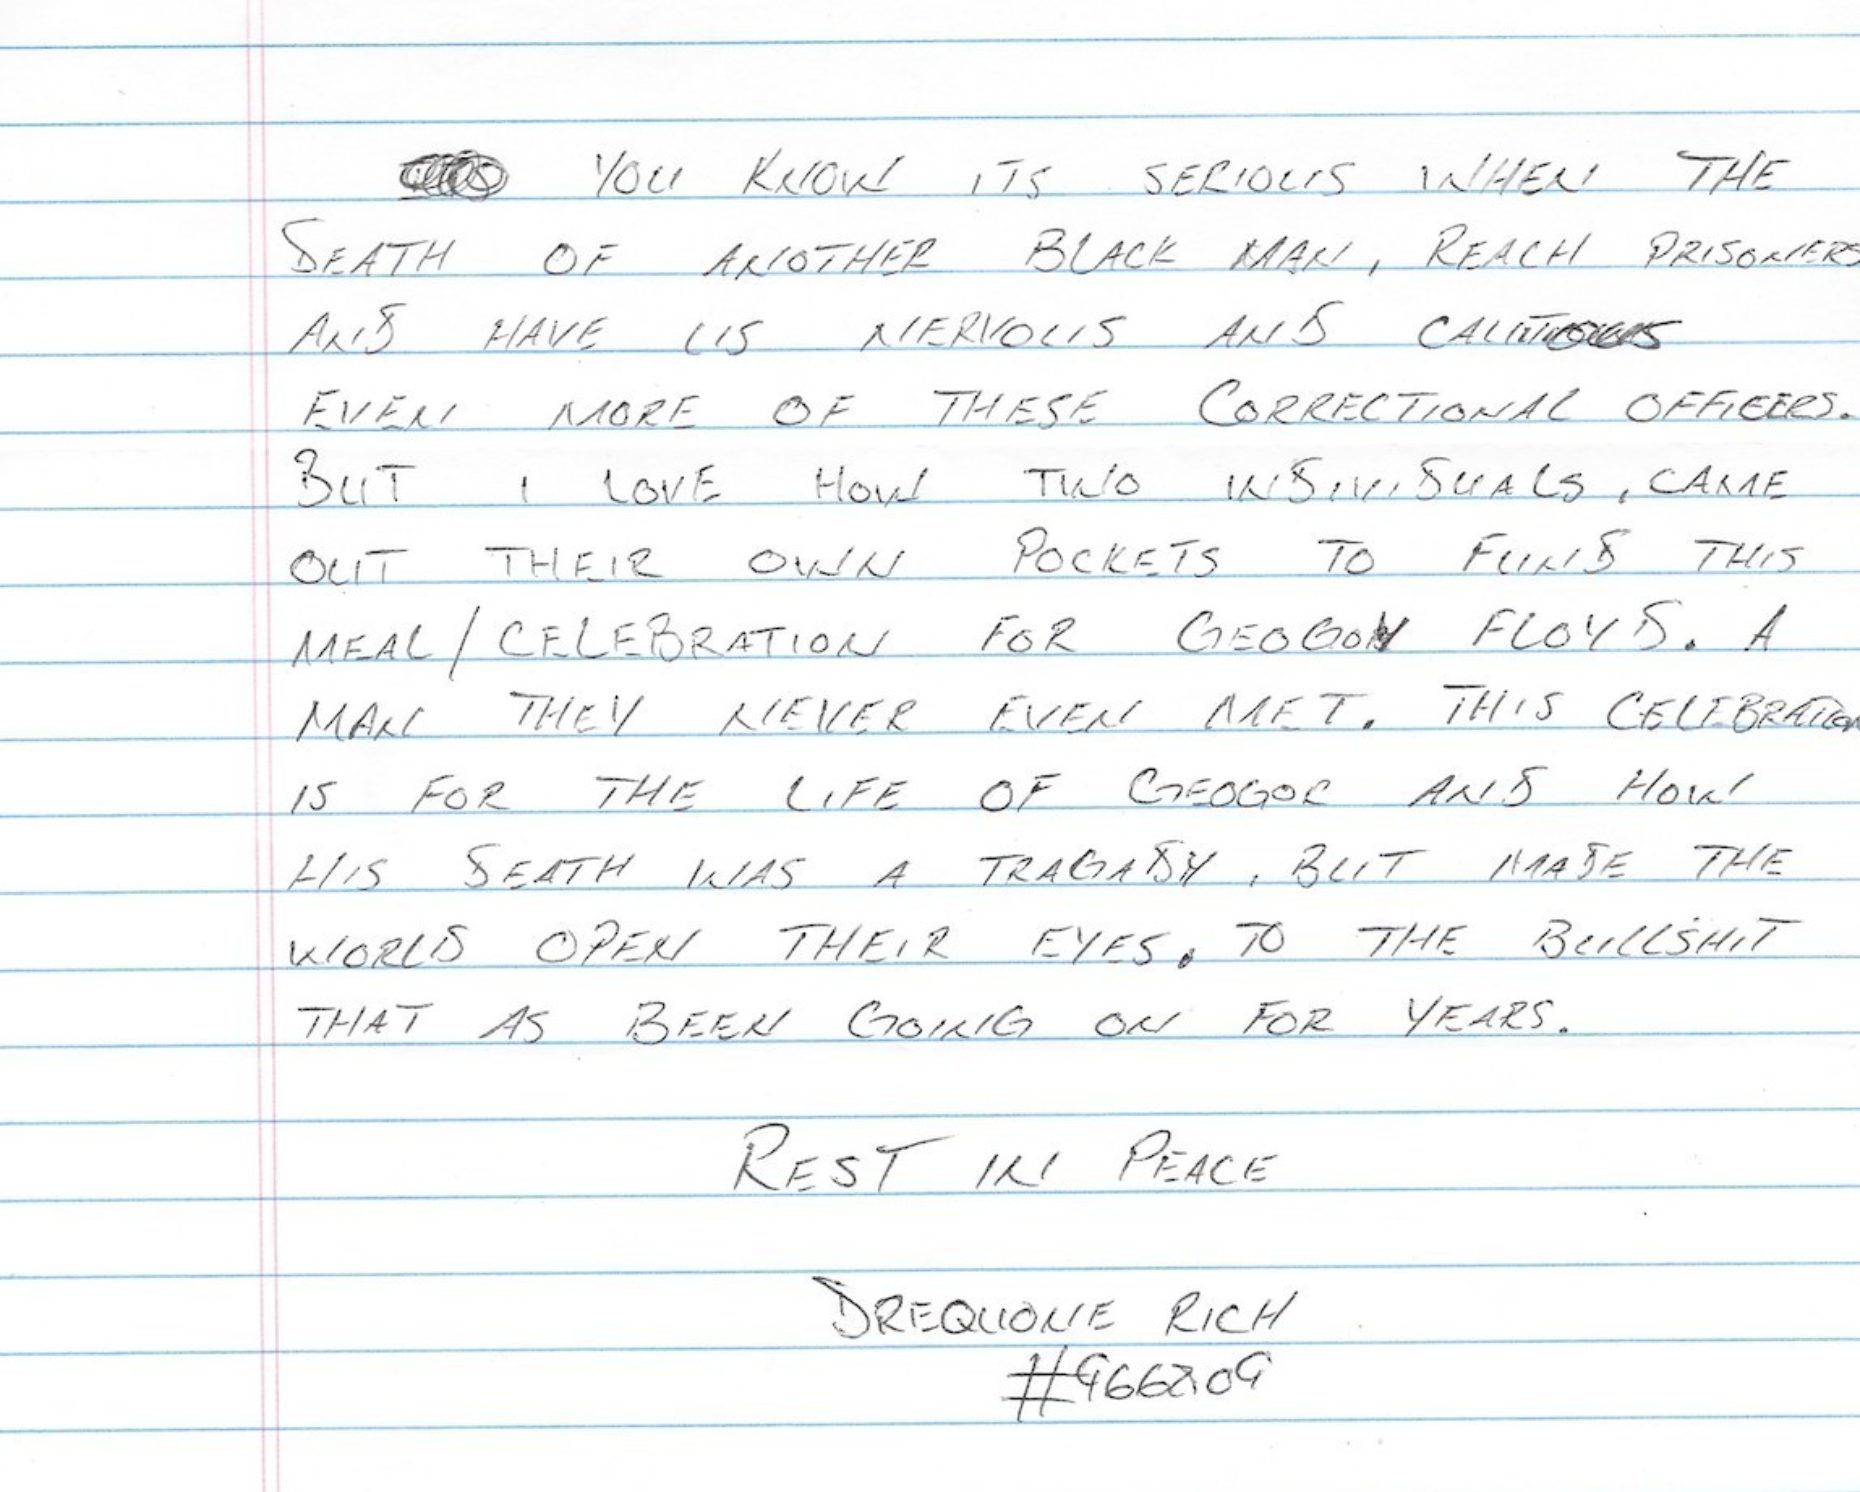 YOU KNOW ITS SERIOUS WHEN THE
DEATH OF ANOTHER BLACK MAN, REACH PRISONERS
AND HAVE US NERVOUS AND CAUTIOUS
EVEN MORE OF THESE CORRECTIONAL OFFICERS.
BUT I LOVE HOW TWO INDIVIDUALS, CAME
OUT THEIR OWN POCKETS TO FUND THIS
MEAL/CELEBRATION FOR FLOYD. A
MAN THEY NEVER EVEN MET. THIS CELEBRATION
IS FOR THE LIFE OF GEOGOR AND HOW
HIS DEATH WAS A TRAGADY, BUT MADE THE
WORLD OPEN THEIR EYES. TO THE BULLSHIT
THAT AS BEEN GOING ON FOR YEARS.
REST IN PEACE
DREQUONE RICH